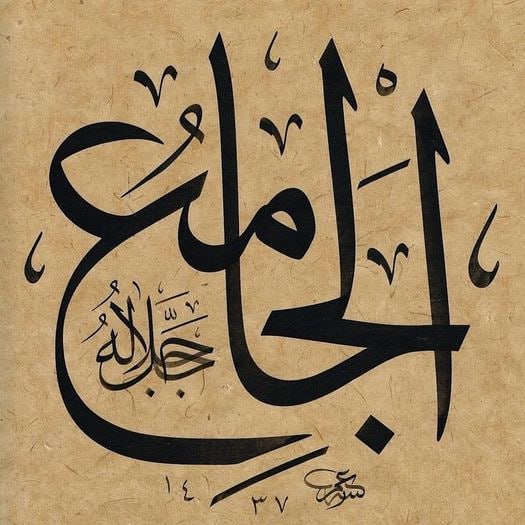 الْجَامِعُ
جَلَّ جَلَالُهُ
١٤٣٧